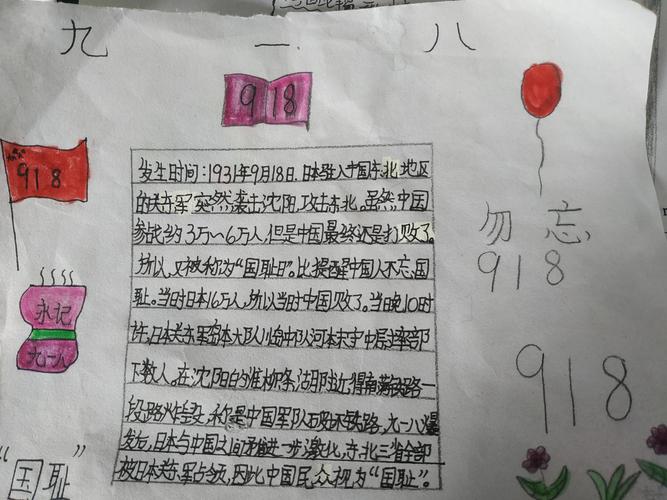 九 一 八
918
918
永记
九一八
发生时间：1931年9月18日，日本驻入中国东北地区
的关东军突然袭击沈阳，攻击东北。虽然中国
参战约3万～6万人，但是中国最终还是打败了。
所以，又被称为“国耻日”。比提醒中国人不忘国
耻。当时日本16万人，所以当时中国败了。当晚10时
许，日本关东军 大队川岛中队河本末守中 率部
下数人，在沈阳 附近 南满铁路一
段路炸毁，称是中国军队破坏铁路，九一八爆
发后，日本与中国之间矛盾进一步激化，东北三省全部
被日本关东军占领，因此中国民众视为“国耻”。
勿忘
918
918
“国耻”